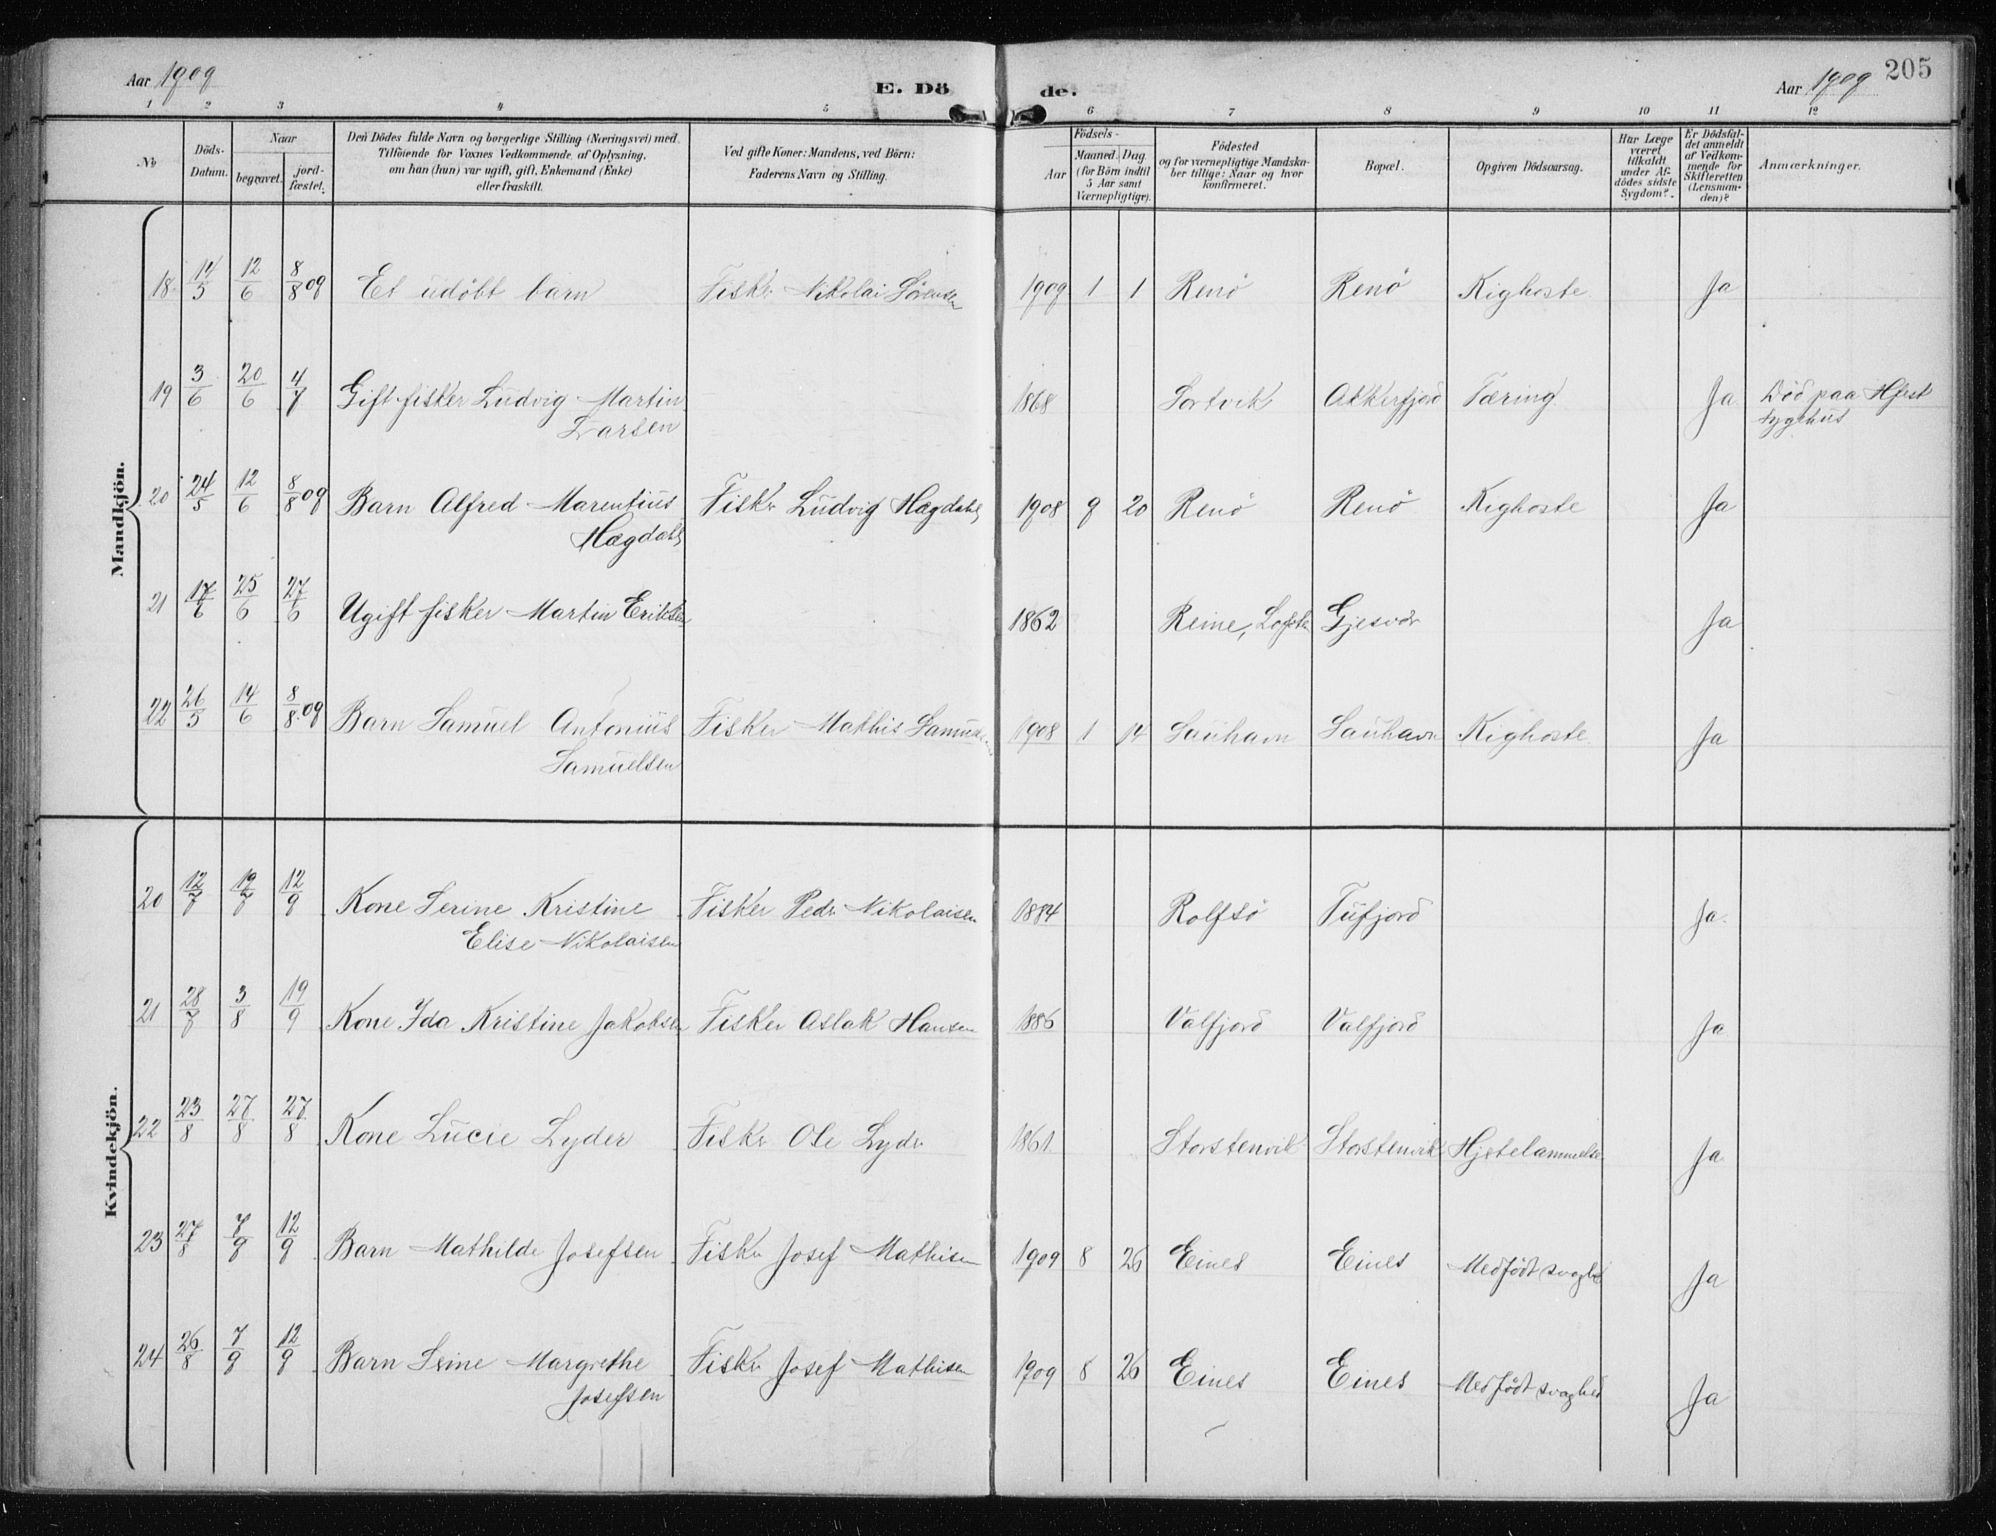 205
Aar 1909 E. Dö de. Aar 1909
1 2 3 4 5 6 7 8 9 10 11 12
No Döds-Datum. Naar begravet. jordfæstet. Den Dödes fulde Navn og borgerlige Stilling (Næringsvei) med Tilföiende for Voxnes Vedkommende af Oplysning, om han (hun) var ugift, gift, Enkemand (Enke) eller fraskilt. Ved gifte Koner: Mandens, ved Börn: Faderens Navn og Stilling. Födsels- Aar Maaned. Dag (for Börn indtil 5 Aar samt Værnepligtige). Födested og for værnepligtige Mandskaber tillige: Naar og hvor konfirmeret. Bopæl. Opgiven Dödsaarsag. Har Læge været tilkaldt under Afdödes sidste Sygdom? Er Dödsfaldet anmeldt af Vedkommende for Skifteretten (Lensmanden)? Anmærkninger.
Mandkjön.
18 14/5 12/6 8/8 09 Et udöbt barn Fisker Nikolai Sörensen 1909 1 1 Renö Renö Kighoste Ja
19 3/6 20/6 4/7 Gift fisker Ludvig Martin 1868 Sortvik Akkerfjord Tæring Ja Död paa Hfest
Larsen sygehus
20 24/5 12/6 8/8 09 Barn Alfred Marentius Fisker Ludvig Hægdahl 1908 9 20 Renö Renö Kighoste Ja
Hægdahl
21 17/6 25/6 27/6 Ugift fisker Martin Eriksen 1862 Reine, Lofoten Gjesvær Ja
22 26/5 14/6 8/8 09 Barn Samuel Antonius Fisker Mathis Samuelsen 1908 1 14 Sauhavn Sauhavn Kighoste Ja
Samuelsen
Kvindekjön.
20 12/7 19/7 12/9 Kone Serine Kristine Fisker Peder Nikolaisen 1884 Rolfsö Tufjord Ja
Elise Nikolaisen
21 28/7 3/8 19/9 Kone Ida Kristine Jakobsen Fisker Aslak Hansen 1886 Valfjord Valfjord Ja
22 23/8 27/8 27/8 Kone Lucie Lyder Fisker Ole Lyder 1861 Storstenvik Storstenvik Hjertelammelse Ja
23 27/8 7/9 12/9 Barn Mathilde Josefsen Fisker Josef Mathisen 1909 8 26 Eines Eines Medfödt svaghed Ja
24 26/8 7/9 12/9 Barn Seine Margrethe Fisker Josef Mathisen 1909 8 26 Eines Eines Medfödt svaghed Ja
Josefsen